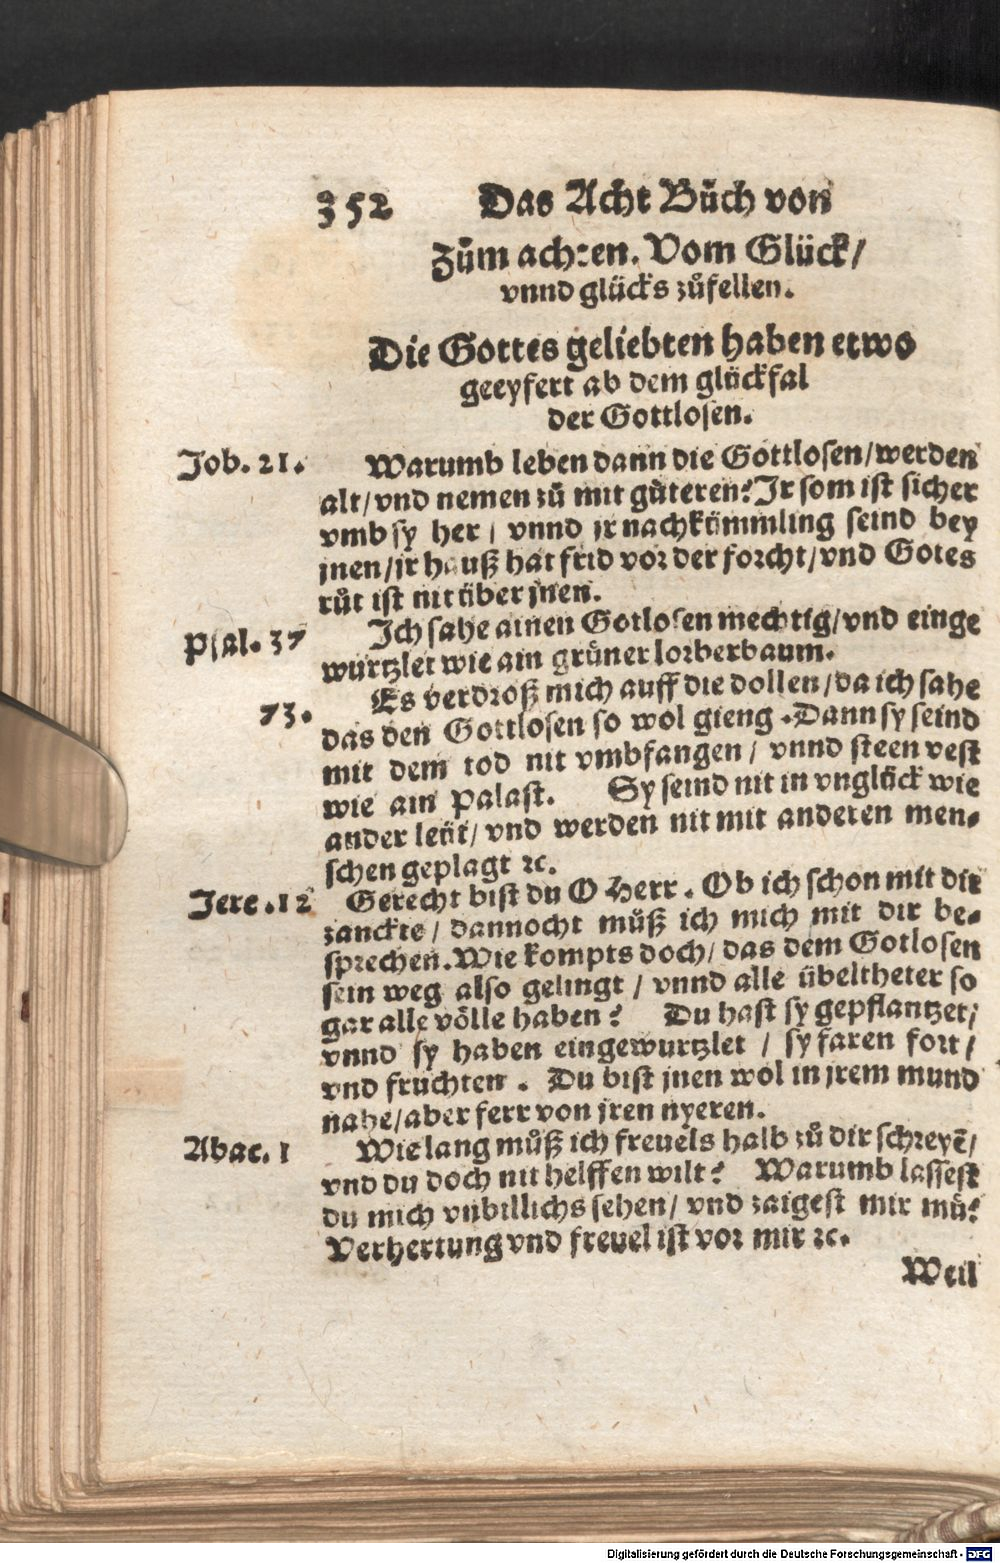 352 Das Acht Bůch von
Zům achten. Vom Glück/
vnnd glücks zůfellen.
Die Gottes geliebten haben etwo
geeyfert ab dem glückfal
der Gottlosen.
Job. 21. Warumb leben dann die Gottlosen/werden
alt/vnd nemen zů mit gůteren? Jr som ist sicher
vmb sy her/ vnnd jr nachkömmling seind bey
jnen/jr hauß hat frid vor der forcht/vnd Gotes
růt ist nit über jnen.
Psal. 37 Ich sahe ainen Gotlosen mechtig/vnd einge
wurtzlet wie ain grüner lorberbaum.
73. Es verdroß mich auff die dollen/da ich sahe
das den Gottlosen so wol gieng. Dann sy seind
mit dem tod nit vmbfangen/ vnnd steen vest
wie ain Palast. Sy seind nit in vnglück wie
ander leüt/ vnd werden nit mit anderen men-
schen geplagt ꝛc.
Jere. 12 Gerecht bist du O Herr. Ob ich schon mit dir
zanckte/ dannocht můß ich mich mit dir be-
sprechen. Wie kompts doch/ das dem Gotlosen
sein weg also gelingt/ vnnd alle übeltheter so
gar alle völle haben? Du hast sy gepflantzet/
vnnd sy haben eingewurtzlet/ sy faren fort/
vnd fruchten. Du bist jnen wol in jrem mund
nahe/aber ferr von jren nyeren.
Abac. 1 Wie lang můß ich freuels halb zů dir schreyẽ/
vnd du doch nit helffen wilt? Warumb lassest
du mich vnbillichs sehen/ vnd zaigest mir mů?
Verhertung vnd freuel ist vor mir ꝛc.
Weil
Digitalisierung gefördert durch die Deutsche Forschungsgemeinschaft - DFG